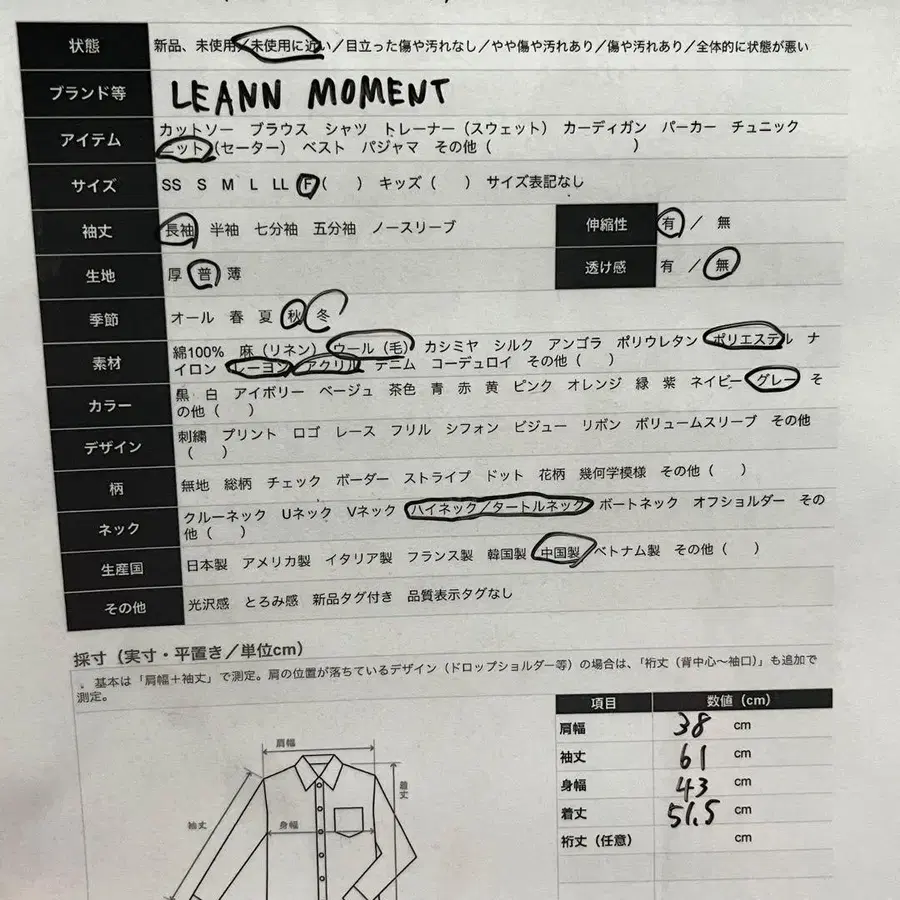 状態 新品、未使用／未使用に近い／目立った傷や汚れなし／やや傷や汚れあり／傷や汚れあり／全体的に状態が悪い
ブランド等 LEANN MOMENT
アイテム カットソー ブラウス シャツ トレーナー（スウェット） カーディガン パーカー チュニック
ニット（セーター） ベスト パジャマ その他（ ）
サイズ SS S M L LL F（ ） キッズ（ ） サイズ表記なし
袖丈 長袖 半袖 七分袖 五分袖 ノースリーブ 伸縮性 有 ／ 無
生地 厚 普 薄 透け感 有 ／ 無
季節 オール 春 夏 秋 冬
素材 綿100% 麻（リネン） ウール（毛） カシミヤ シルク アンゴラ ポリウレタン ポリエステル ナ
イロン レーヨン アクリル デニム コーデュロイ その他（ ）
カラー 黒 白 アイボリー ベージュ 茶色 青 赤 黄 ピンク オレンジ 緑 紫 ネイビー グレー そ
の他（ ）
デザイン 刺繍 プリント ロゴ レース フリル シフォン ビジュー リボン ボリュームスリーブ その他
（ ）
柄 無地 総柄 チェック ボーダー ストライプ ドット 花柄 幾何学模様 その他（ ）
ネック クルーネック Uネック Vネック ハイネック／タートルネック ボートネック オフショルダー その
他（ ）
生産国 日本製 アメリカ製 イタリア製 フランス製 韓国製 中国製 ベトナム製 その他（ ）
その他 光沢感 とろみ感 新品タグ付き 品質表示タグなし
採寸（実寸・平置き／単位cm）
基本は「肩幅＋袖丈」で測定。肩の位置が落ちているデザイン（ドロップショルダー等）の場合は、「裄丈（背中心〜袖口）」も追加で
測定。
項目 数値（cm）
肩幅 38 cm
袖丈 61 cm
身幅 43 cm
着丈 51.5 cm
裄丈（任意） cm
肩幅
着丈
袖丈
身幅